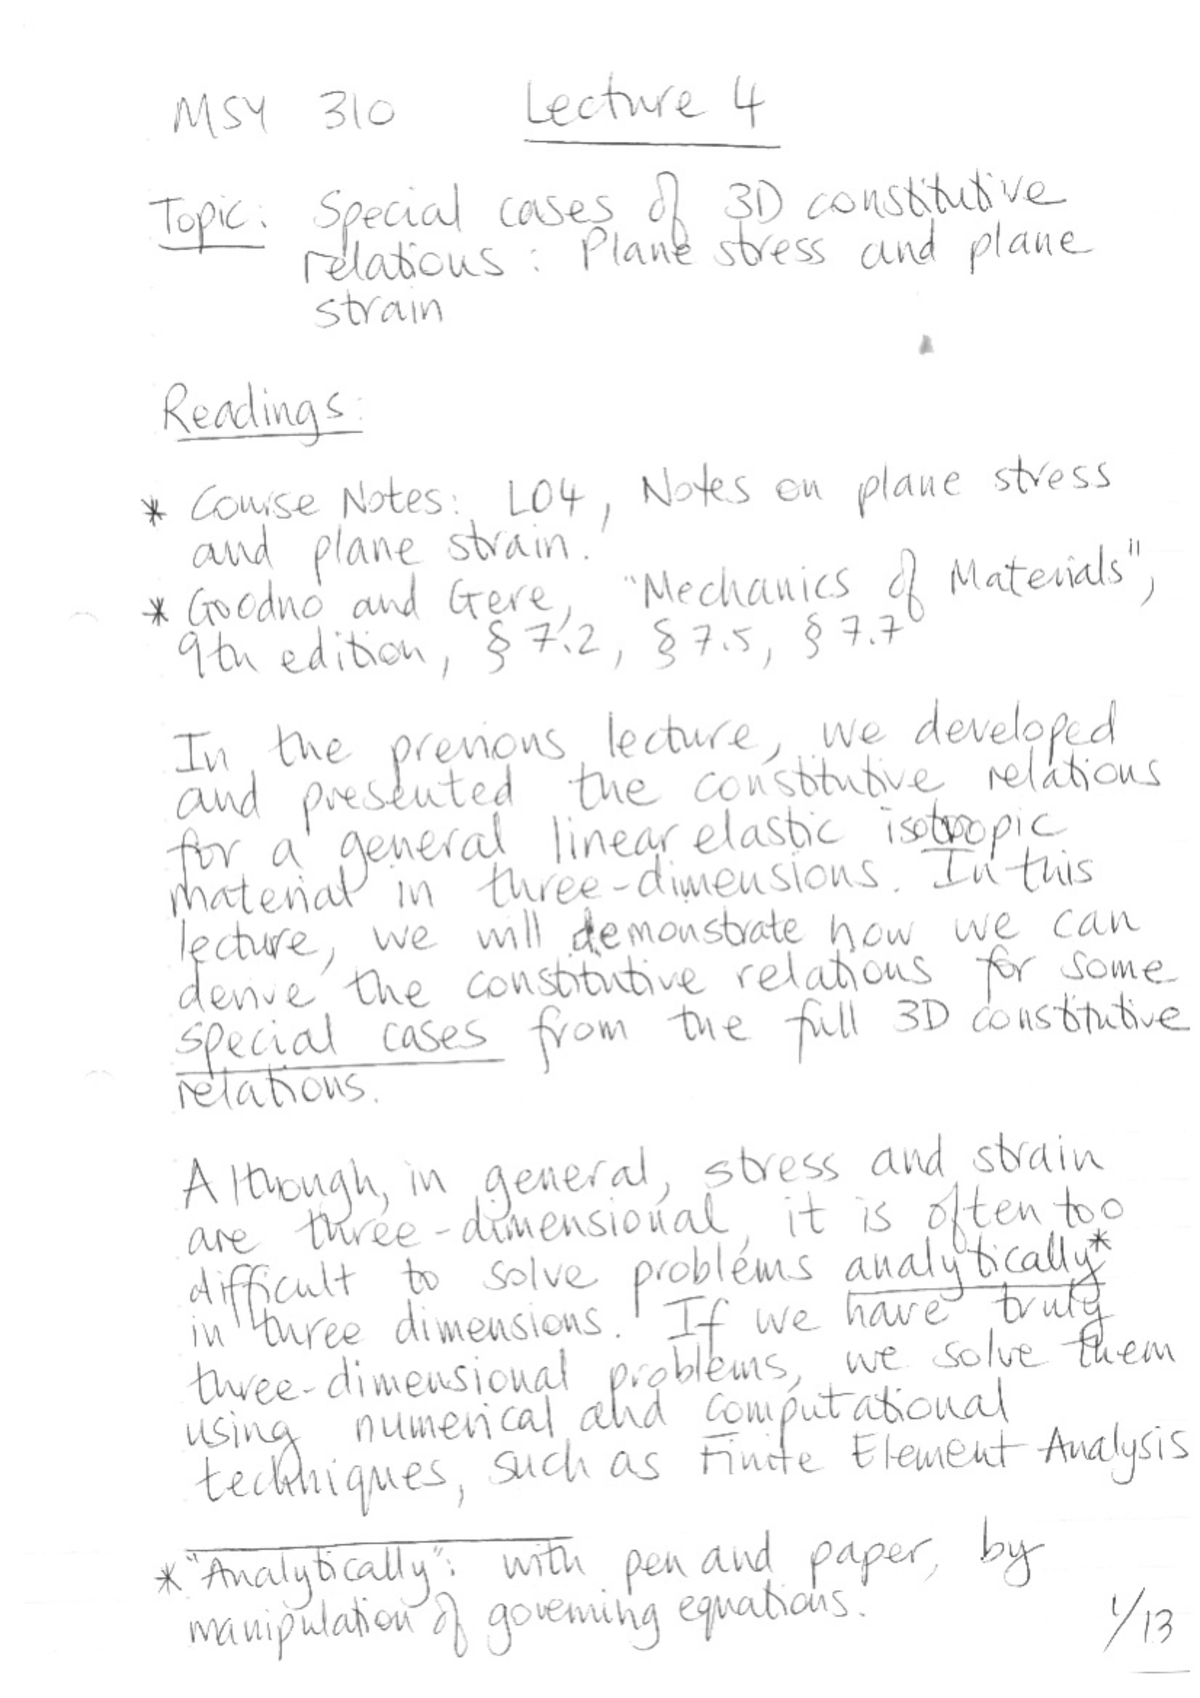 MSY 310 Lecture 4
Topic: Special cases of 3D constitutive
relations: Plane stress and plane
strain
Readings:
* Course Notes: L04, Notes on plane stress
and plane strain.
* Goodno and Gere, "Mechanics of Materials",
9th edition, § 7.2, § 7.5, § 7.7
In the previous lecture, we developed
and presented the constitutive relations
for a general linear elastic isotropic
material in three-dimensions. In this
lecture, we will demonstrate how we can
derive the constitutive relations for some
special cases from the full 3D constitutive
relations.
Although, in general, stress and strain
are three-dimensional, it is often too
difficult to solve problems analytically*
in three dimensions. If we have truly
three-dimensional problems, we solve them
using numerical and computational
techniques, such as Finite Element Analysis
* "Analytically": with pen and paper, by
manipulation of governing equations.
1/13